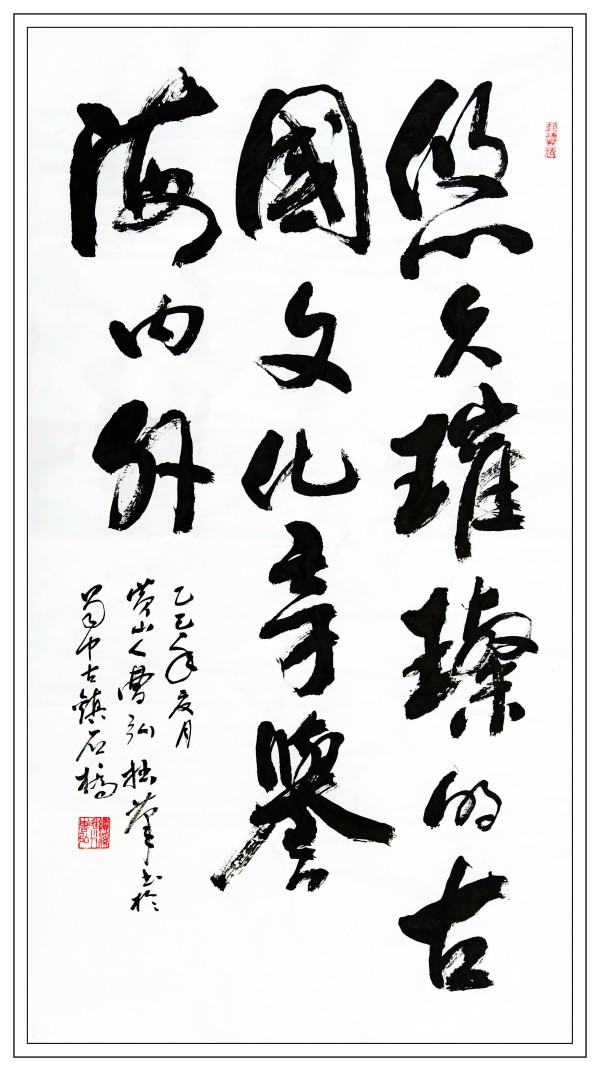 悠久璀璨的古
國文化享譽
海内外
乙巳年夏月
营山人曹弘拙筆书於
蜀中古鎮石橋